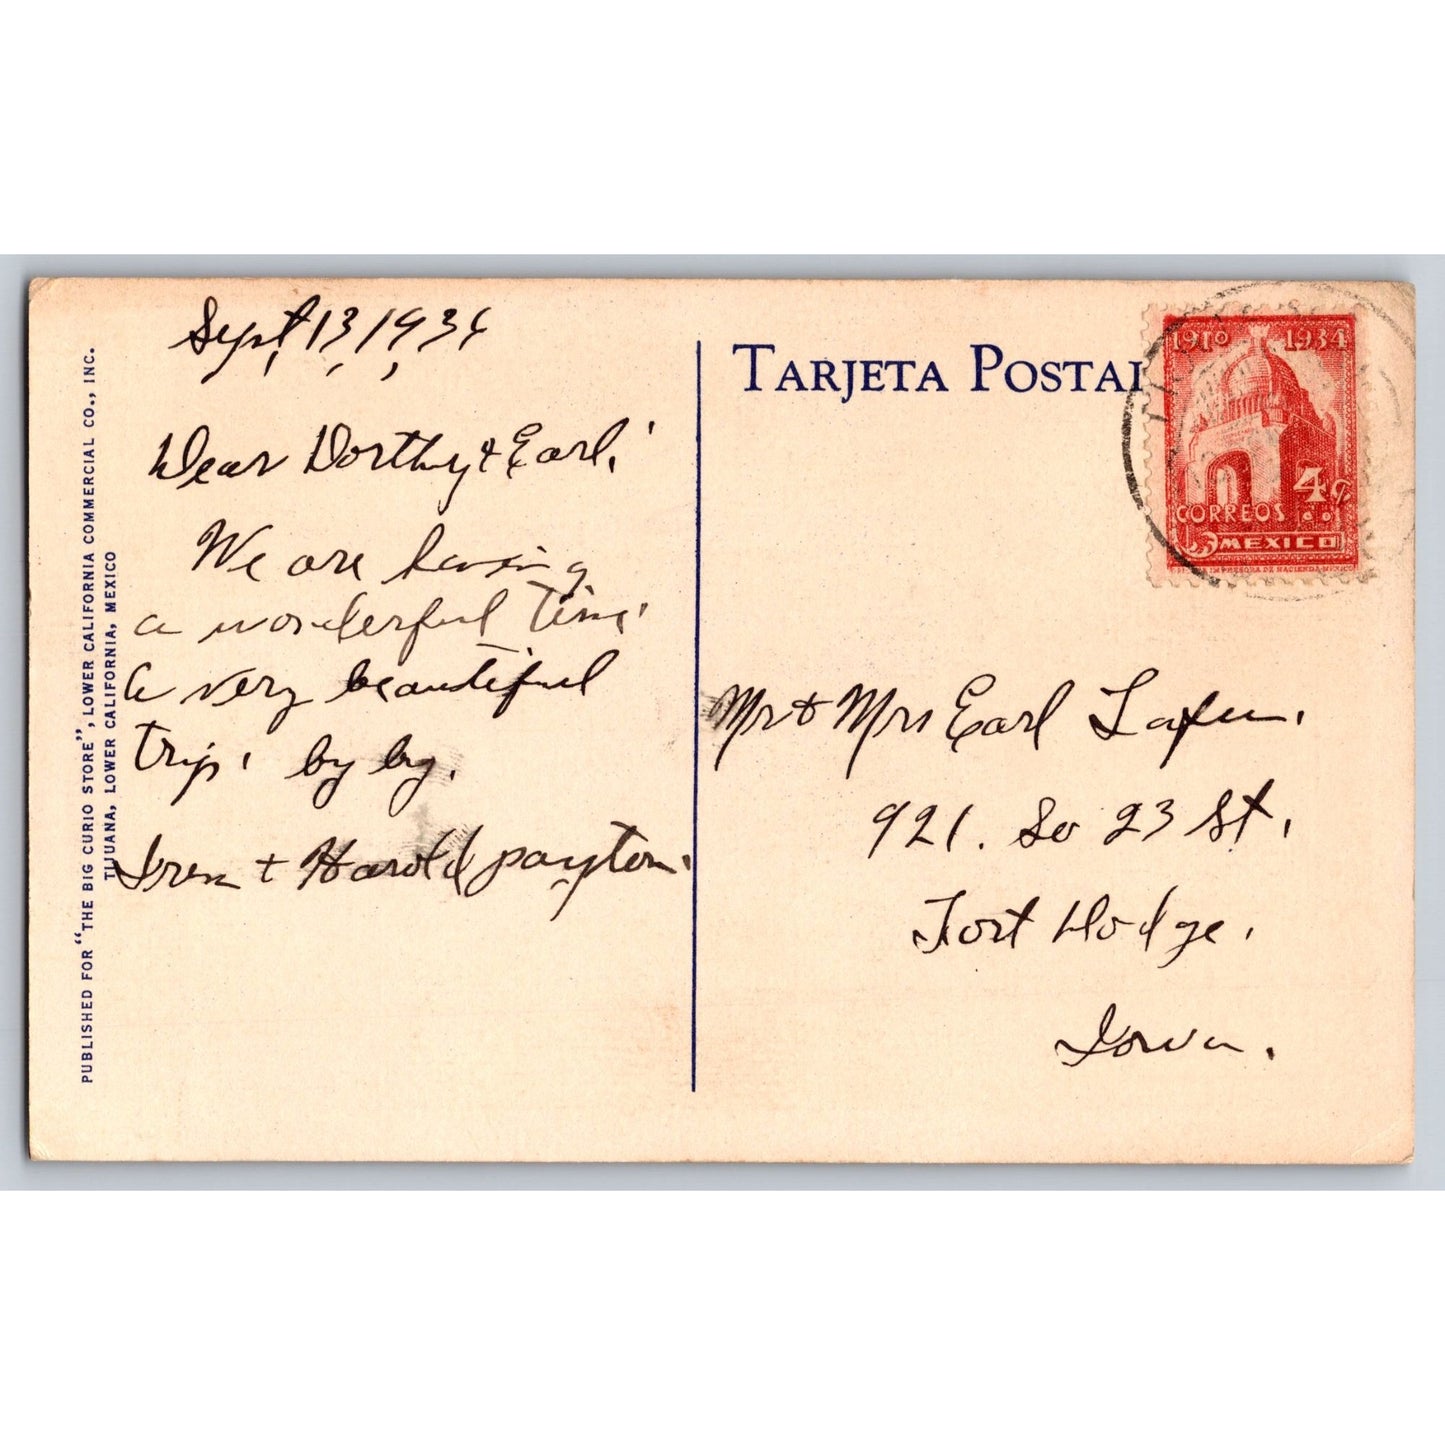 Sept, 13, 1934
Dear Dorthy & Earl.
We are having
a wonderful time.
a very beautiful
trip. by by.
Iren + Harold payton.
PUBLISHED FOR "THE BIG CURIO STORE", LOWER CALIFORNIA COMMERCIAL CO., INC.
TIJUANA, LOWER CALIFORNIA, MEXICO
TARJETA POSTAL
1910 1934
4 c
CORREOS
MEXICO
Mr & Mrs Earl
921. So 23 St.
Fort Dodge.
Iowa.